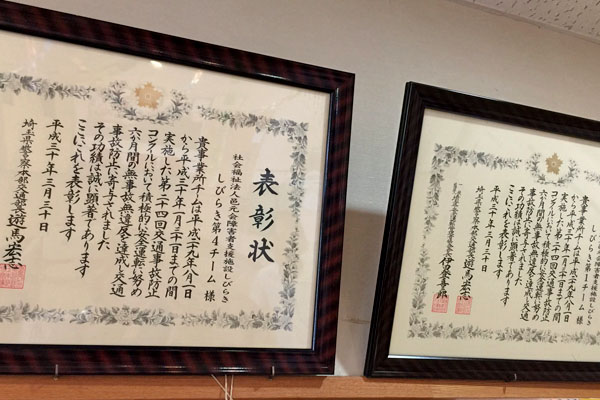 表彰状
社会福祉法人邑元会障害者支援施設しびらき
しびらき第4チーム 様
貴事業所チームは平成二十九年八月一日
から平成三十年一月三十日までの間
実施した第二十四回交通事故防止
コンクールにおいて積極的に安全運転に努め
六か月間の無事故無違反を達成し交通
事故防止に寄与されました
その功績は誠に顕著であります
ここにこれを表彰します
平成三十年三月三十日
埼玉県警察本部交通部長
しびらき第1チーム 様
貴事業所チームは平成二十九年八月一日
から平成三十年一月三十日までの間
実施した第二十四回交通事故防止
コンクールにおいて積極的に安全運転に努め
六か月間の無事故無違反を達成し交通
事故防止に寄与されました
その功績は誠に顕著であります
ここにこれを表彰します
平成三十年三月三十日
埼玉県警察本部交通部長